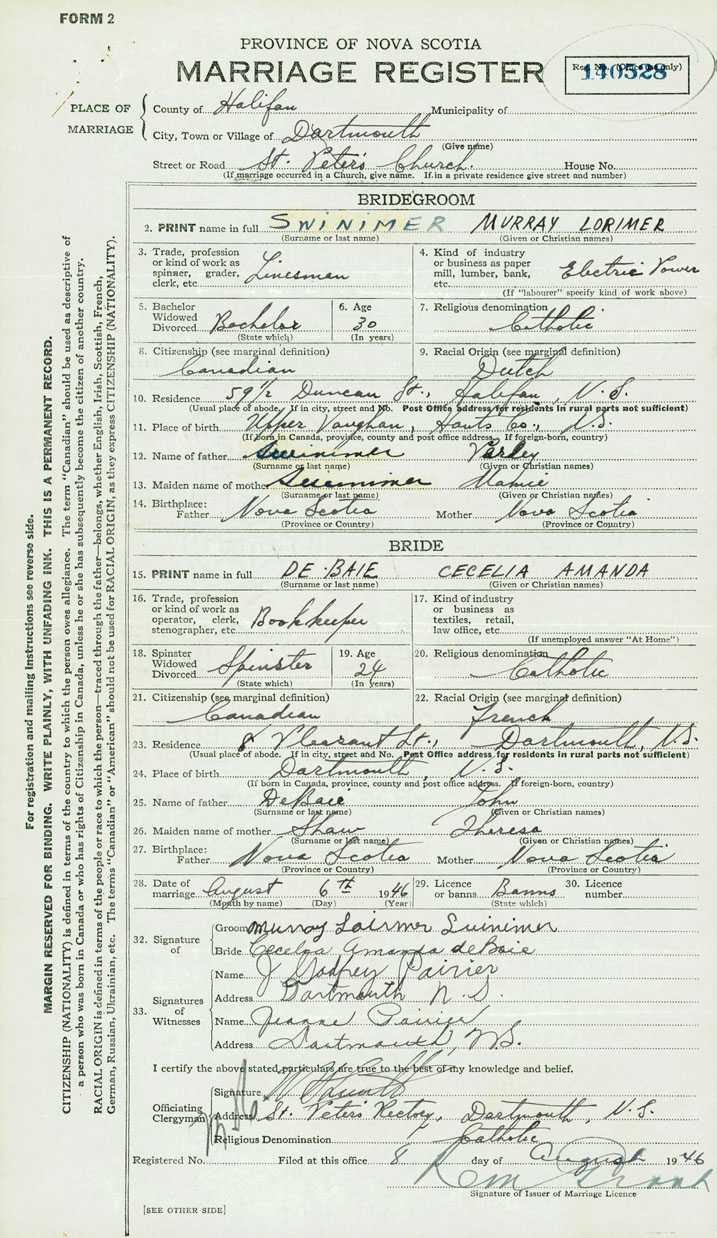 FORM 2
PROVINCE OF NOVA SCOTIA
MARRIAGE REGISTER
Reg. No. (Office use only)
140528
PLACE OF MARRIAGE
County of Halifax Municipality of
City, Town or Village of Dartmouth
(Give name)
Street or Road St. Peter's Church House No.
(If marriage occurred in a Church, give name. If in a private residence give street and number)
BRIDEGROOM
2. PRINT name in full SWINIMER MURRAY LORIMER
(Surname or last name) (Given or Christian names)
3. Trade, profession or kind of work as spinner, grader, clerk, etc. Linesman
4. Kind of industry or business as paper mill, lumber, bank, etc. Electric Power
(If "labourer" specify kind of work above)
5. Bachelor Widowed Divorced Bachelor
(State which)
6. Age 30
(In years)
7. Religious denomination
Catholic
8. Citizenship (see marginal definition)
Canadian
9. Racial Origin (see marginal definition)
Dutch
10. Residence 59½ Duncan St., Halifax, N.S.
(Usual place of abode. If in city, street and No. Post Office address for residents in rural parts not sufficient)
11. Place of birth Upper Vaughan, Hants Co., N.S.
(If born in Canada, province, county and post office address. If foreign-born, country)
12. Name of father Swinimer Varley
(Surname or last name) (Given or Christian names)
13. Maiden name of mother Swinimer Mamie
(Surname or last name) (Given or Christian names)
14. Birthplace: Father Nova Scotia Mother Nova Scotia
(Province or Country) (Province or Country)
BRIDE
15. PRINT name in full DE BAIE CECELIA AMANDA
(Surname or last name) (Given or Christian names)
16. Trade, profession or kind of work as operator, clerk, stenographer, etc. Bookkeeper
17. Kind of industry or business as textiles, retail, law office, etc.
(If unemployed answer "At Home")
18. Spinster Widowed Divorced Spinster
(State which)
19. Age 24
(In years)
20. Religious denomination
Catholic
21. Citizenship (see marginal definition)
Canadian
22. Racial Origin (see marginal definition)
French
23. Residence 8 Pleasant St., Dartmouth, N.S.
(Usual place of abode. If in city, street and No. Post Office address for residents in rural parts not sufficient)
24. Place of birth Dartmouth, N.S.
(If born in Canada, province, county and post office address. If foreign-born, country)
25. Name of father DeBaie John
(Surname or last name) (Given or Christian names)
26. Maiden name of mother Shaw Theresa
(Surname or last name) (Given or Christian names)
27. Birthplace: Father Nova Scotia Mother Nova Scotia
(Province or Country) (Province or Country)
28. Date of marriage August 6th 1946
(Month by name) (Day) (Year)
29. Licence or banns Banns
(State which)
30. Licence number
32. Signature of
Groom Murray Lorimer Swinimer
Bride Cecelia Amanda deBaie
33. Signatures of Witnesses
Name J Godfrey Pairier
Address Dartmouth N.S.
Name Jeanne Pairier
Address Dartmouth, N.S.
I certify the above stated particulars are true to the best of my knowledge and belief.
Officiating Clergyman
Signature
Address St. Peter's Rectory, Dartmouth, N.S.
Religious Denomination Catholic
Registered No. Filed at this office 8 day of August 1946
Signature of Issuer of Marriage Licence
[SEE OTHER SIDE]
For registration and mailing instructions see reverse side.
MARGIN RESERVED FOR BINDING. WRITE PLAINLY, WITH UNFADING INK. THIS IS A PERMANENT RECORD.
CITIZENSHIP (NATIONALITY) is defined in terms of the country to which the person owes allegiance. The term "Canadian" should be used as descriptive of
a person who was born in Canada or who has rights of Citizenship in Canada, unless he or she has subsequently become the citizen of another country.
RACIAL ORIGIN is defined in terms of the people or race to which the person—traced through the father—belongs, whether English, Irish, Scottish, French,
German, Russian, Ukrainian, etc. The terms "Canadian" or "American" should not be used for RACIAL ORIGIN, as they express CITIZENSHIP (NATIONALITY).